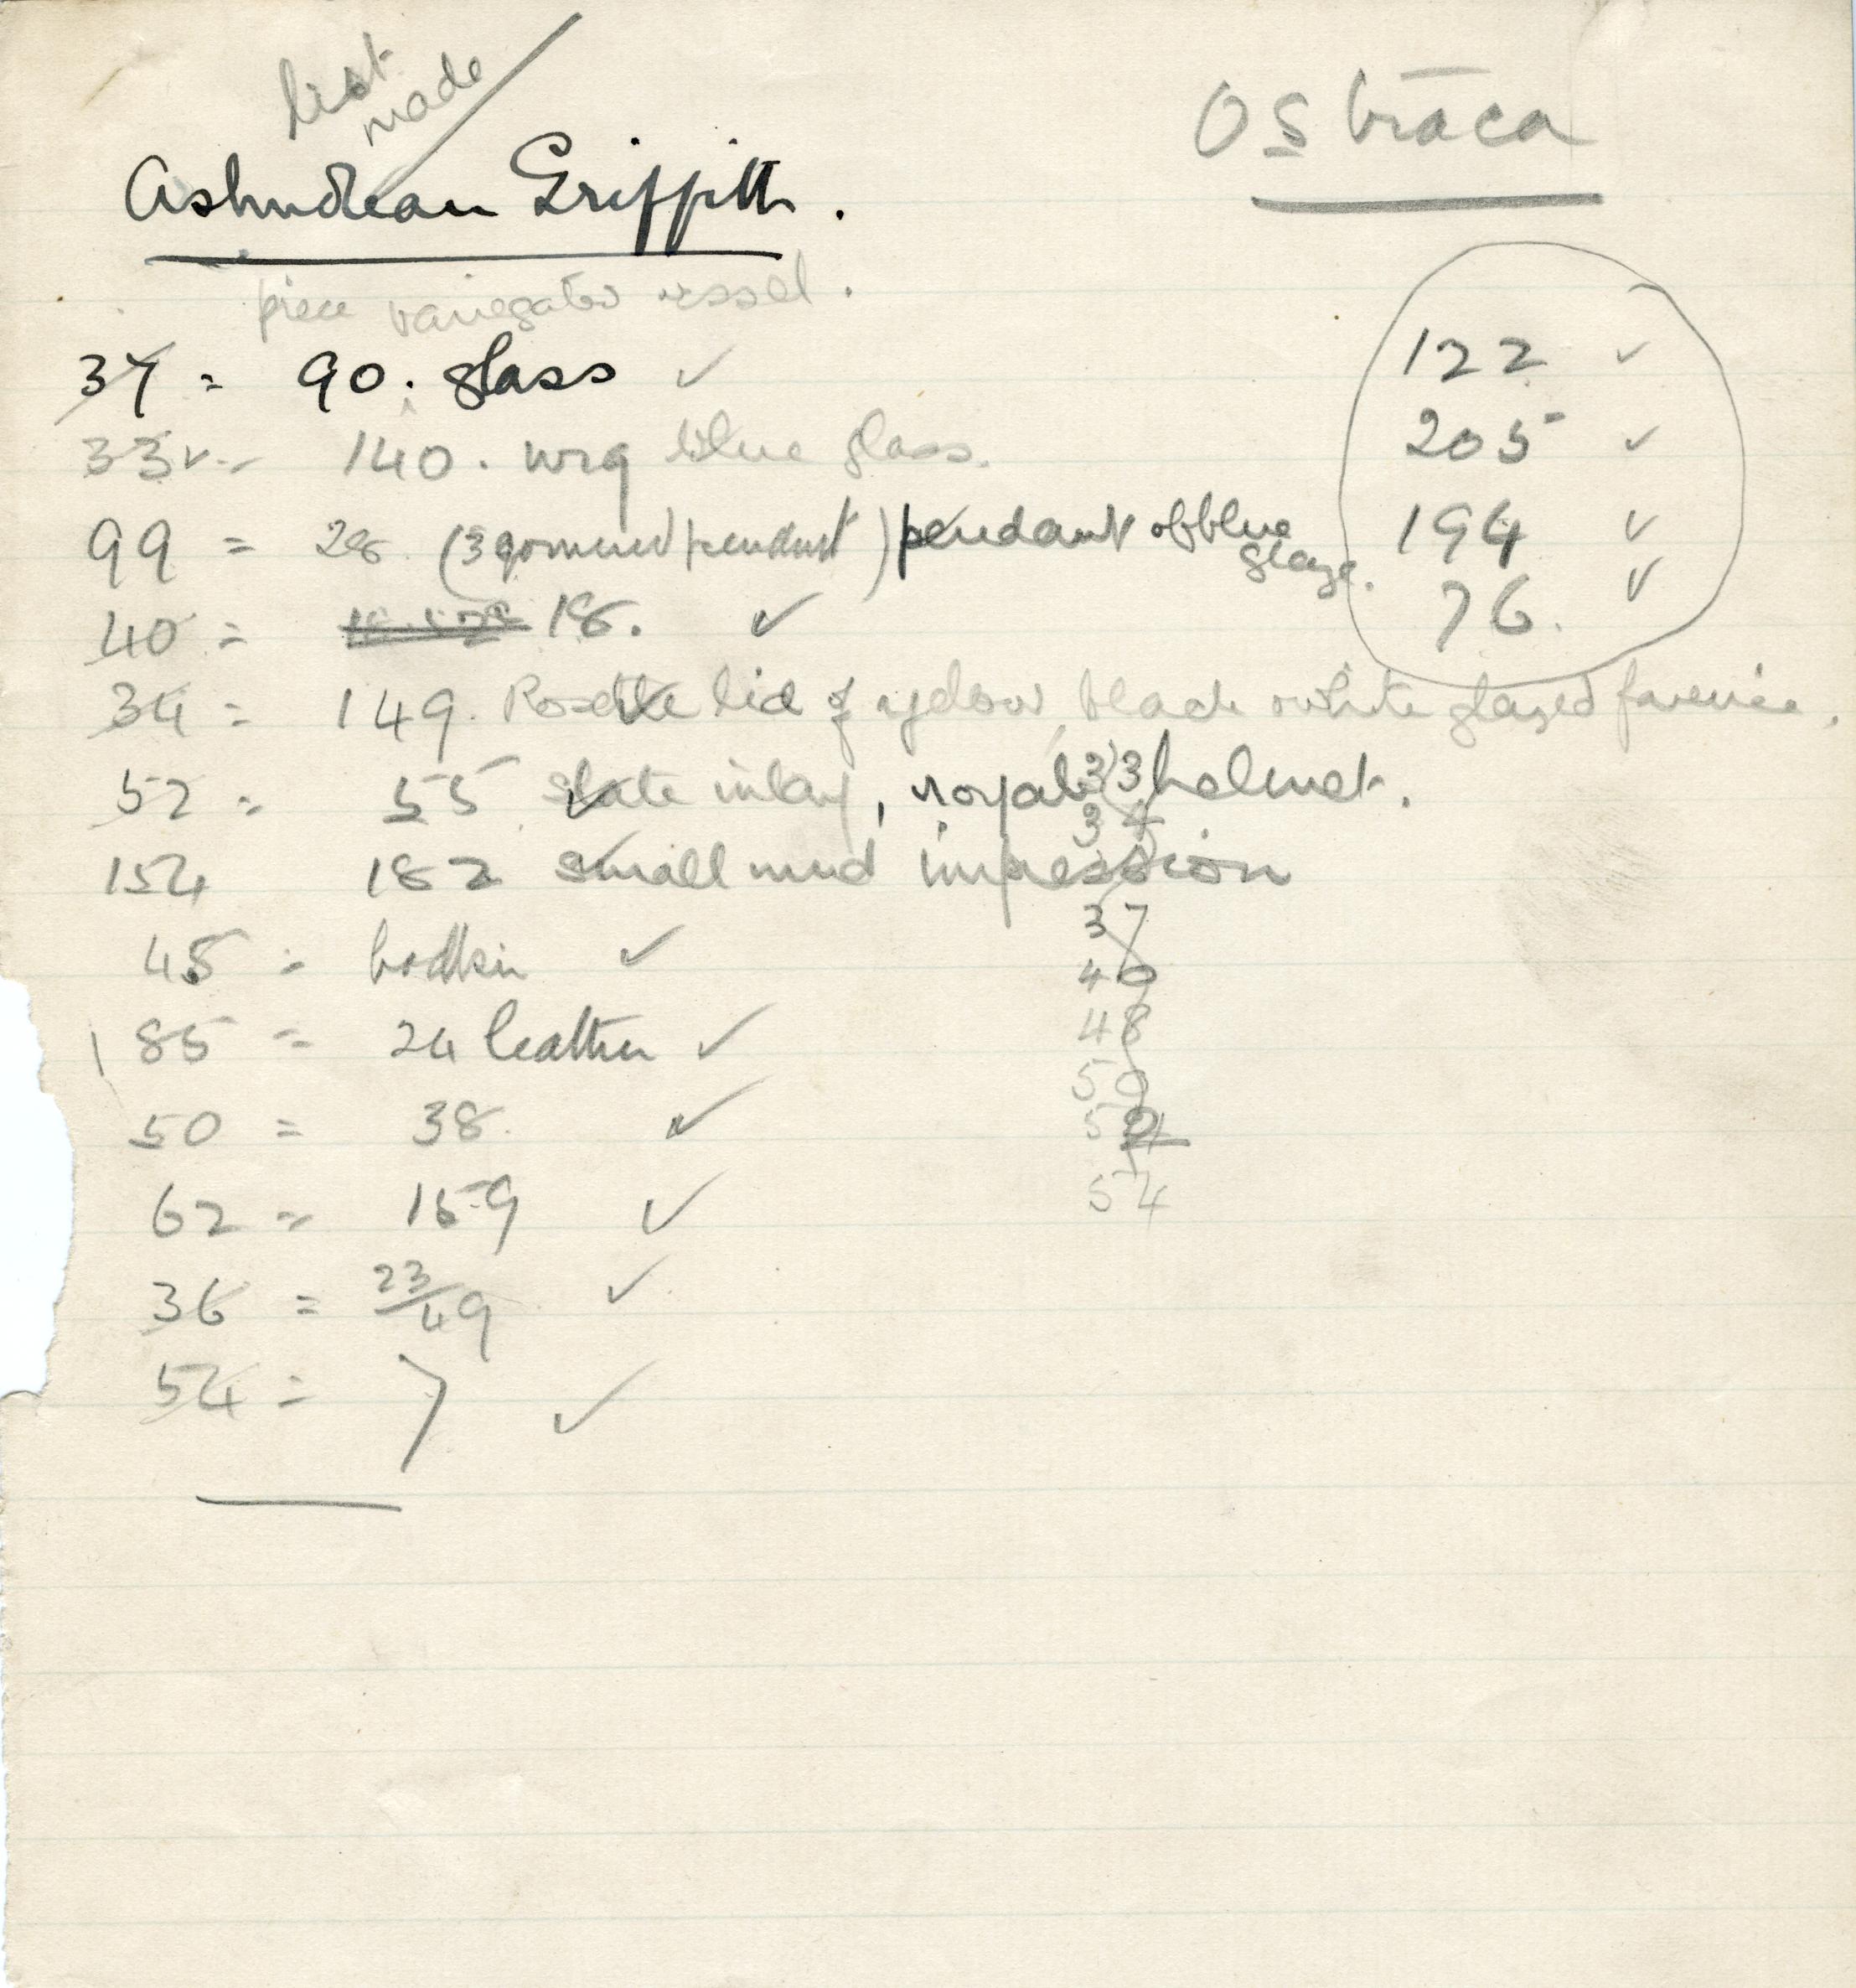 list
made
Ostraca
Ashmolean Griffith.
piece variegated vessel.
37 = 90. glass ✓
33 ✓ = 140. wrq blue glass.
99 = 28 (3 pendant) pendant of blue
glaze.
40 = 18. ✓
34 = 149. Rosette lid of yellow, black white glazed faience.
52 = 55 slate inlay, royal helmet.
154 182 small mud impression
45 = bodkin ✓
85 = 24 leather ✓
50 = 38. ✓
62 = 159 ✓
36 = 23/49 ✓
54 = 7 ✓
122 ✓
205 ✓
194 ✓
76. ✓
33
34
37
40
48
50
54